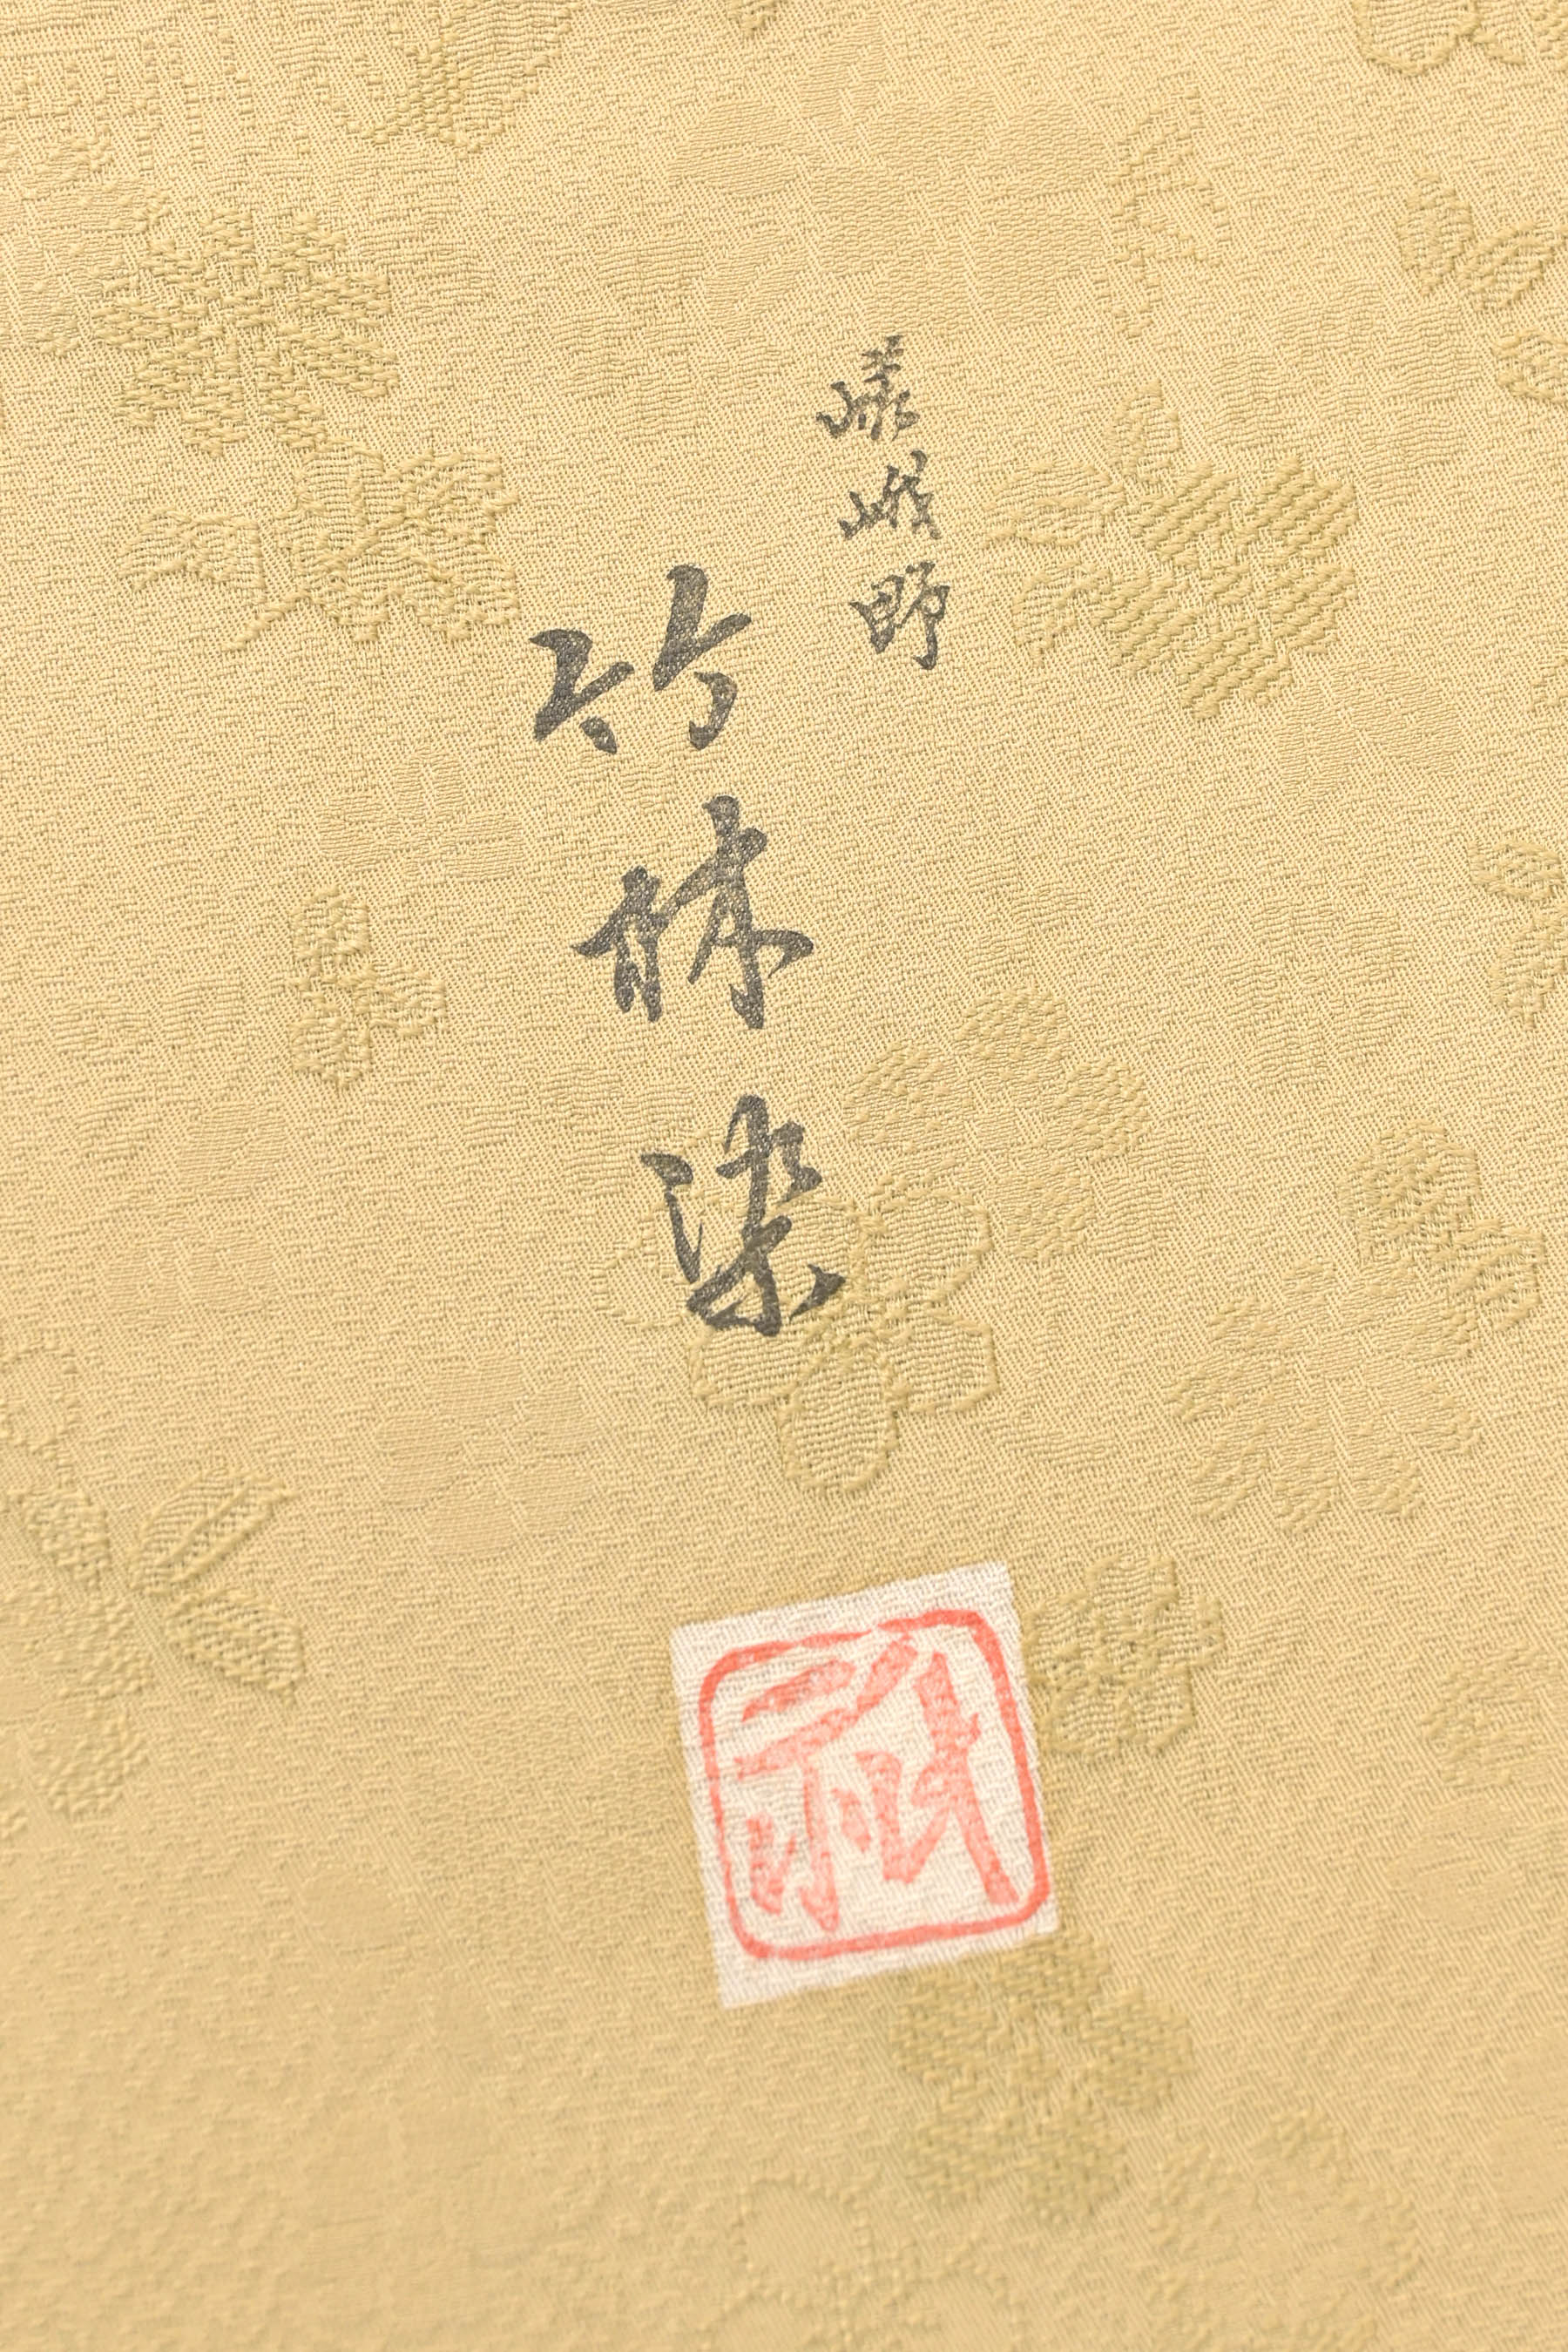 嵯峨野
竹林染
祇